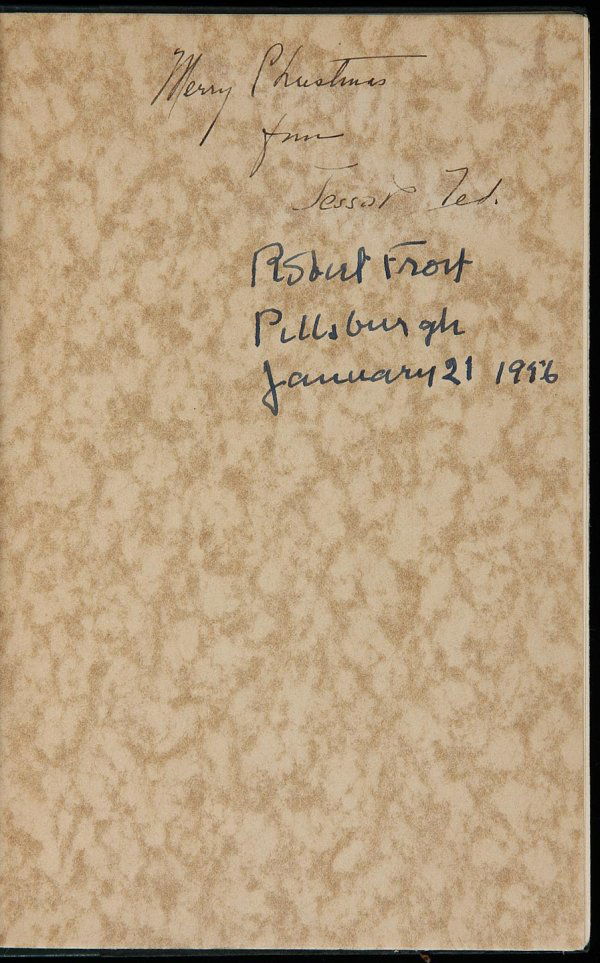 Merry Christmas
from
Jess & Ted.
Robert Frost
Pittsburgh
January 21 1956